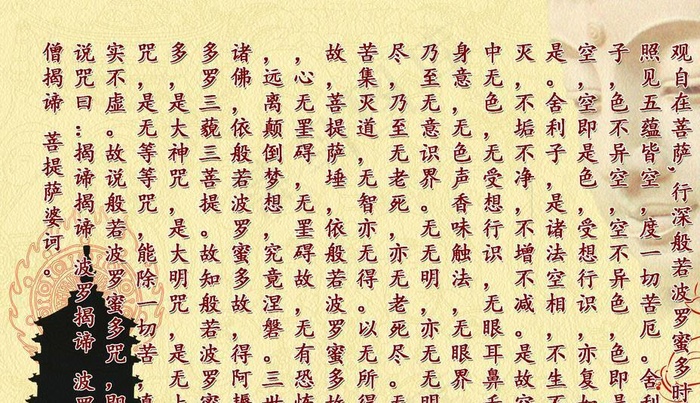 观自在菩萨，行深般若波罗蜜多时
照见五蕴皆空，度一切苦厄。舍利
子，色不异空，空不异色，色即是
空，空即是色。受想行识，亦复如
是。舍利子，是诸法空相，不生不
灭，不垢不净，不增不减。是故空
中无色，无受想行识，无眼耳鼻
身意，无色声香味触法，无眼界
乃至无意识界。无无明，亦无无
尽，乃至无老死，亦无老死尽。无
苦集灭道，无智亦无得。以无所得
故，菩提萨埵，依般若波罗蜜多故
，心无罣碍，无罣碍故，无有恐怖
，远离颠倒梦想，究竟涅磐。三世
诸佛，依般若波罗蜜多故，得阿耨
多罗三藐三菩提。故知般若波罗
多，是大神咒，是大明咒，是无上
咒，是无等等咒，能除一切苦，真
实不虚。故说般若波罗蜜多咒，即
说咒曰：揭谛揭谛 波罗揭谛 波罗
僧揭谛 菩提萨婆诃。